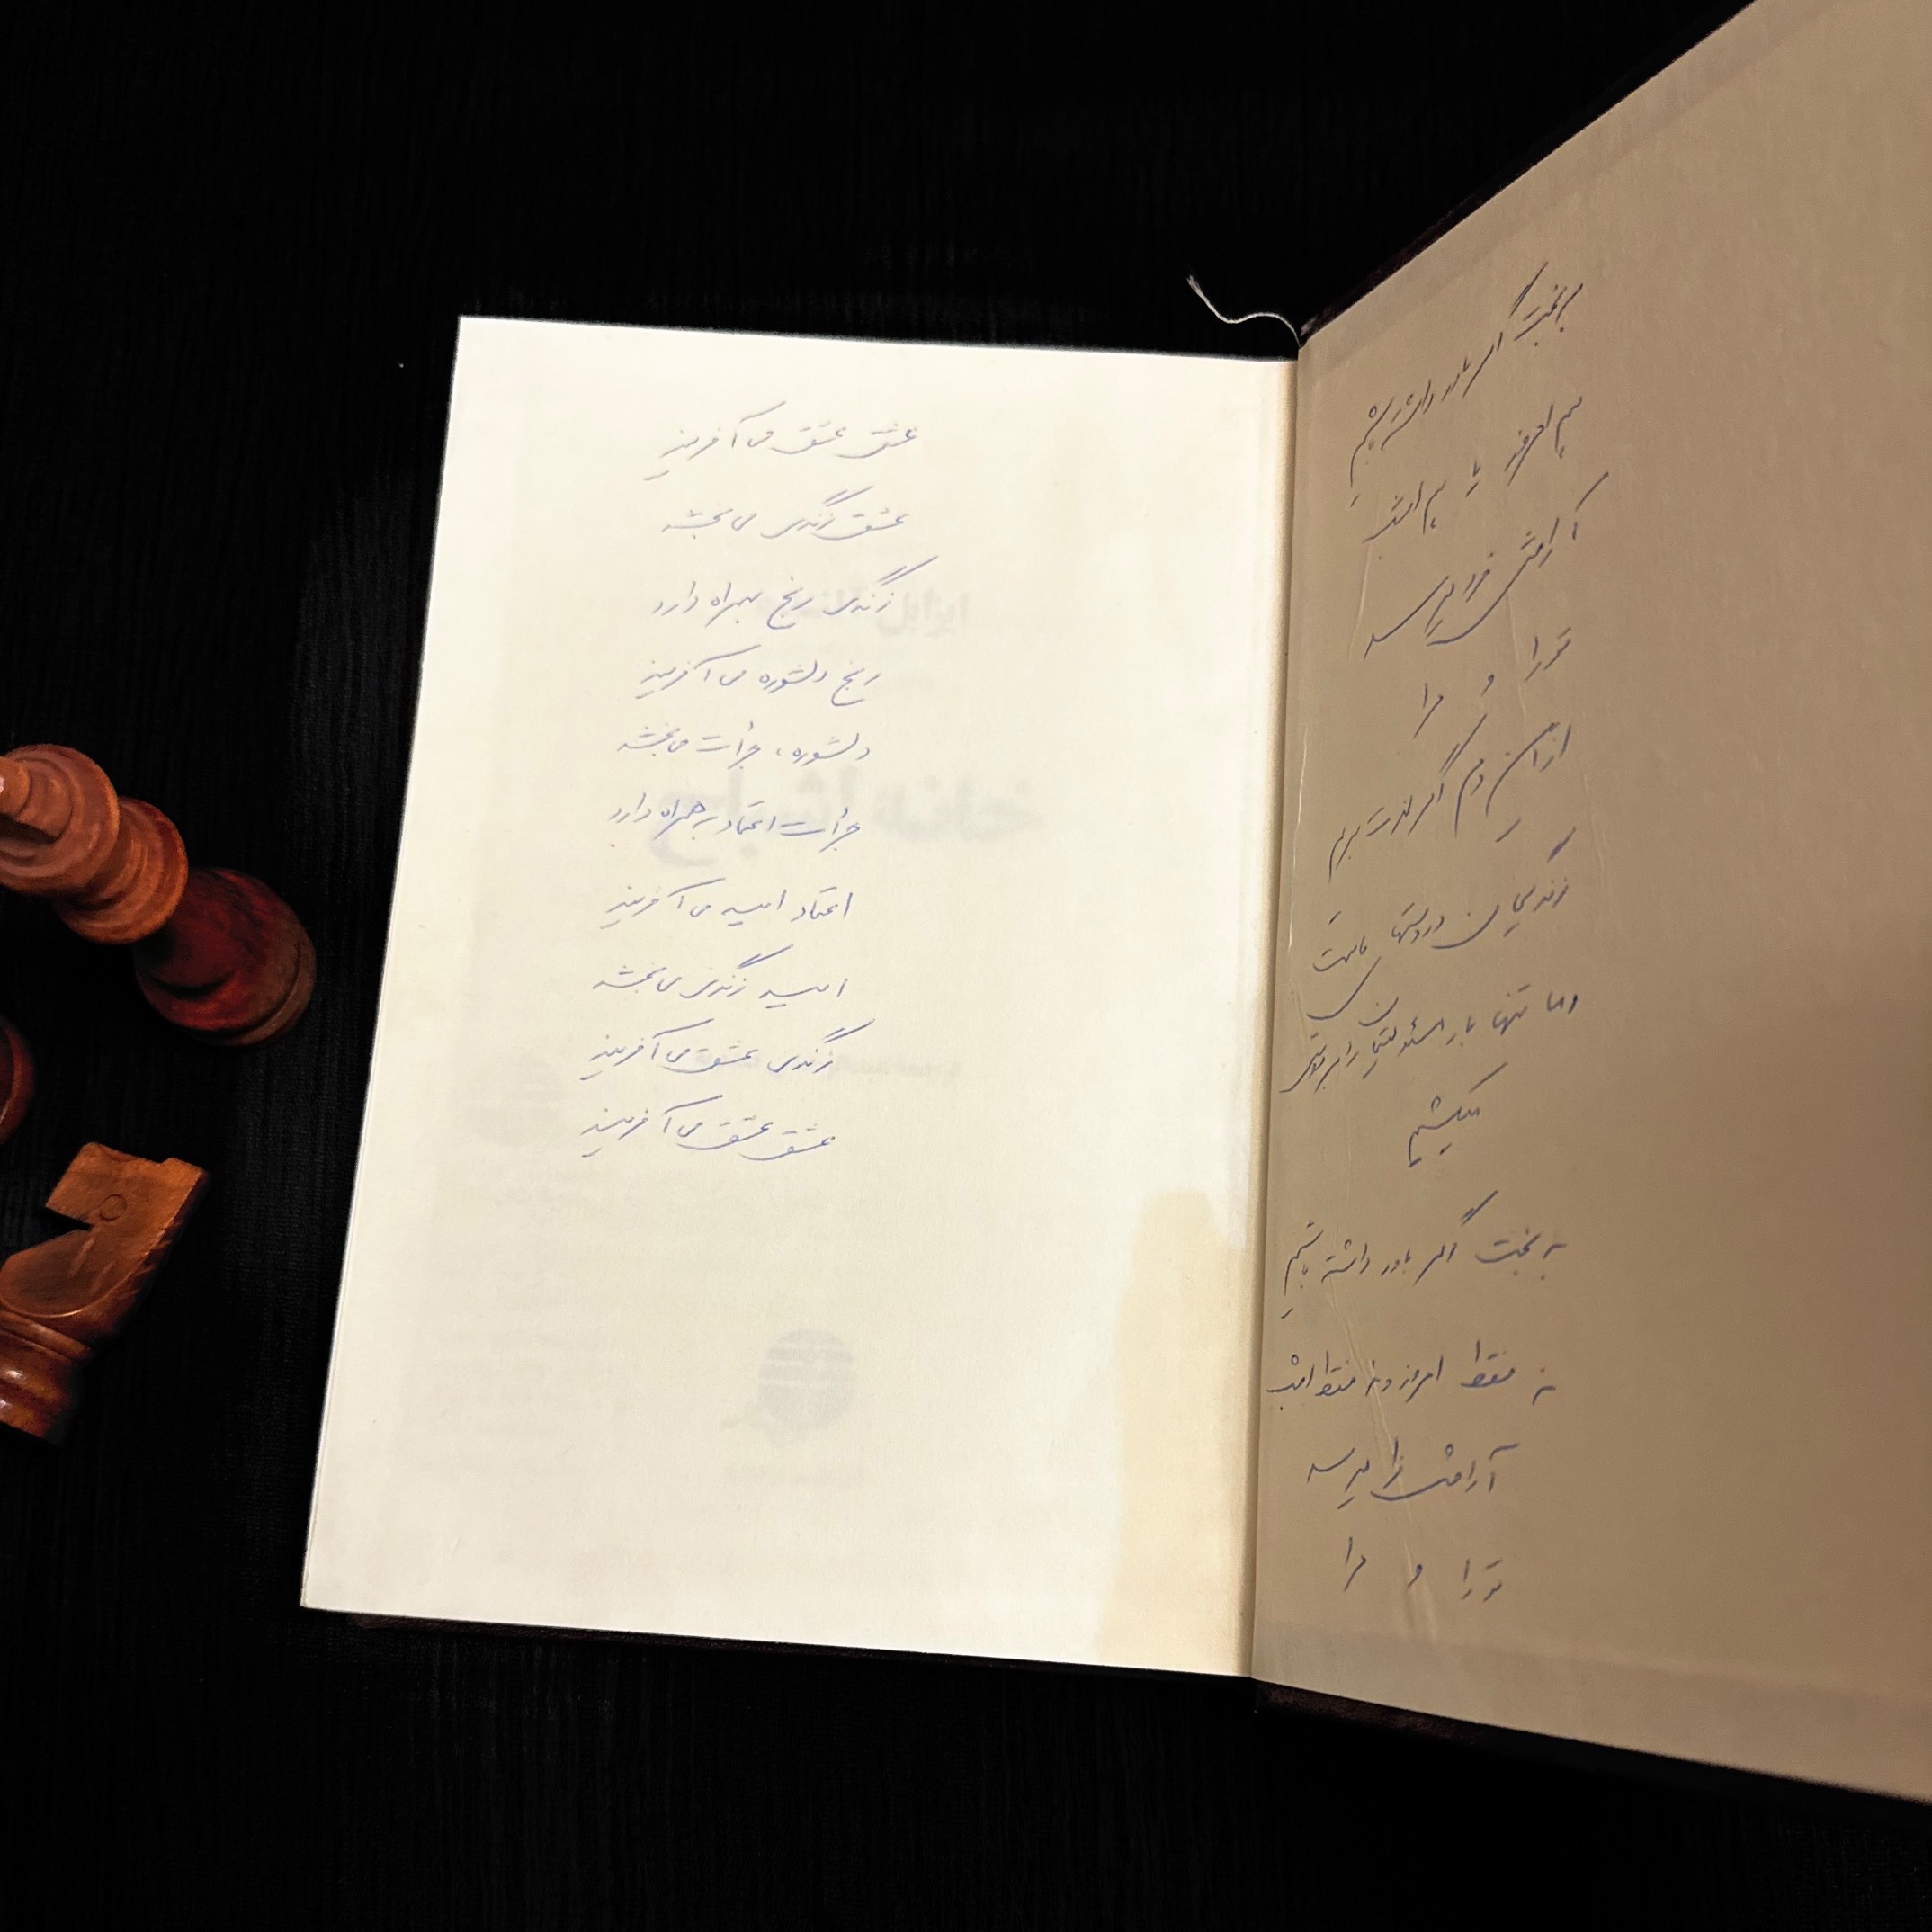 به بخت اگر باور داشته باشیم
هم امروز یا هم امشب
آرامش فرا میرسد
ترا و مرا
از این دم اگر لذت بریم
زندگیمان در دستهای ماست
و ما تنها بار مسئولیتها را بر دوش
میکشیم
به بخت اگر باور داشته باشیم
نه فقط امروز و نه فقط امشب
آرامش فرا میرسد
ترا و مرا
عشق عشق می آفریند
عشق زندگی می بخشد
زندگی رنج بهمراه دارد
رنج دلشوره می آفریند
دلشوره، جرأت می بخشد
جرأت اعتماد به همراه دارد
اعتماد امید می آفریند
امید زندگی می بخشد
زندگی عشق می آفریند
عشق عشق می آفریند